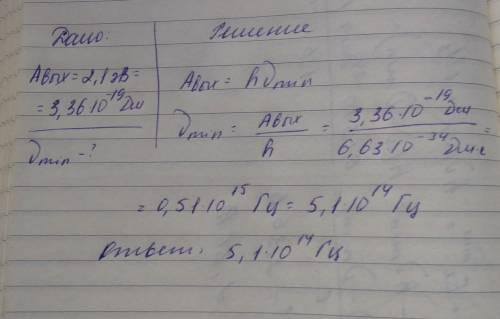 Дано:
Aвых = 2,1 эВ =
= 3,36·10⁻¹⁹ Дж
νmin - ?
Решение
Aвых = hνmin
νmin = Aвых / h = 3,36·10⁻¹⁹ Дж / 6,63·10⁻³⁴ Дж·с =
= 0,51·10¹⁵ Гц = 5,1·10¹⁴ Гц
Ответ: 5,1·10¹⁴ Гц